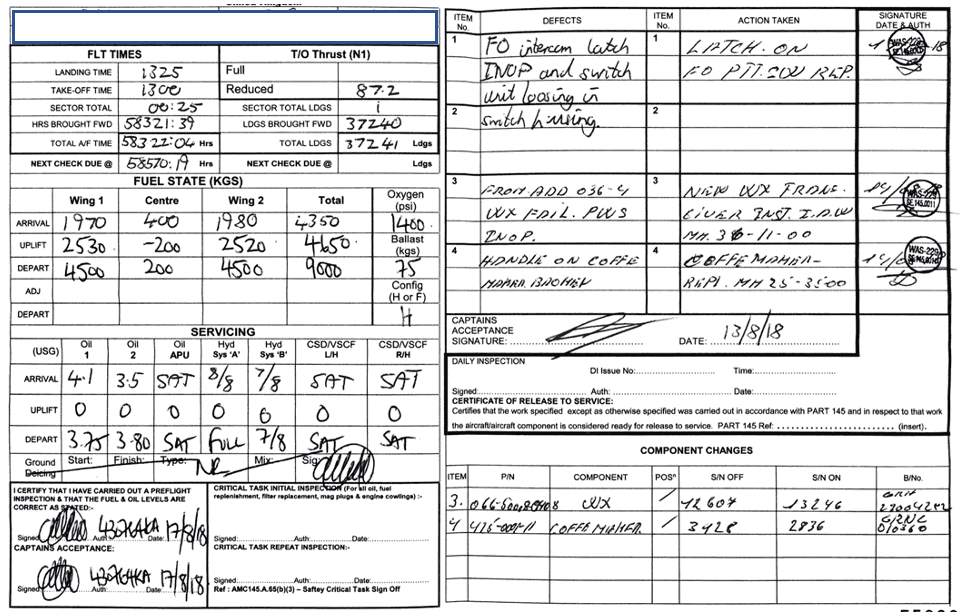 United Kingdom
FLT TIMES T/O Thrust (N1)
LANDING TIME 1325 Full
TAKE-OFF TIME 1300 Reduced 87.2
SECTOR TOTAL 00:25 SECTOR TOTAL LDGS 1
HRS BROUGHT FWD 58321:39 LDGS BROUGHT FWD 37240
TOTAL A/F TIME 58322:04 Hrs TOTAL LDGS 37241 Ldgs
NEXT CHECK DUE @ 58570:19 Hrs NEXT CHECK DUE @ Ldgs
FUEL STATE (KGS)
Wing 1 Centre Wing 2 Total Oxygen (psi)
ARRIVAL 1970 400 1980 4350 1400
UPLIFT 2530 -200 2520 4650 Ballast (kgs)
DEPART 4500 200 4500 9000 75
ADJ Config (H or F)
DEPART H
SERVICING
(USG) Oil 1 Oil 2 Oil APU Hyd Sys 'A' Hyd Sys 'B' CSD/VSCF L/H CSD/VSCF R/H
ARRIVAL 4.1 3.5 SAT 8/8 7/8 SAT SAT
UPLIFT 0 0 0 0 0 0 0
DEPART 3.75 3.80 SAT FULL 7/8 SAT SAT
Ground Deicing Start: Finish: Type: Mix: Sig
I CERTIFY THAT I HAVE CARRIED OUT A PREFLIGHT
INSPECTION & THAT THE FUEL & OIL LEVELS ARE
CORRECT AS STATED:-
Signed Auth Date: 17/8/18
CAPTAINS ACCEPTANCE:
Signed Auth Date: 17/8/18
CRITICAL TASK INITIAL INSPECTION (For all oil, fuel
replenishment, filter replacement, mag plugs & engine cowlings) :-
Signed Auth: Date:
CRITICAL TASK REPEAT INSPECTION:-
Signed Auth: Date:
Ref : AMC145.A.65(b)(3) – Saftey Critical Task Sign Off
ITEM No. DEFECTS ITEM No. ACTION TAKEN SIGNATURE DATE & AUTH
1 FO intercom latch 1 LATCH. ON
INOP and switch FO PTT. SW REP.
unit loosing in
2 switch housing. 2
3 FROM ADD 036-4 3 NEW WX TRANS.
WX FAIL. PWS CIVER INST. I.A.W
INOP. MM. 36-11-00
4 HANDLE ON COFFE 4 COFFE MAHER-
REPL. MM 25-35-00
CAPTAINS
ACCEPTANCE
SIGNATURE: DATE: 13/8/18
DAILY INSPECTION
DI Issue No: Time:
Signed: Auth: Date:
CERTIFICATE OF RELEASE TO SERVICE:
Certifies that the work specified except as otherwise specified was carried out in accordance with PART 145 and in respect to that work
the aircraft/aircraft component is considered ready for release to service. PART 145 Ref: (insert).
COMPONENT CHANGES
ITEM P/N COMPONENT POSⁿ S/N OFF S/N ON B/No.
3. WX / 12607 13246 GRN
4 COFFE MAHER / 3428 2836 GRNC